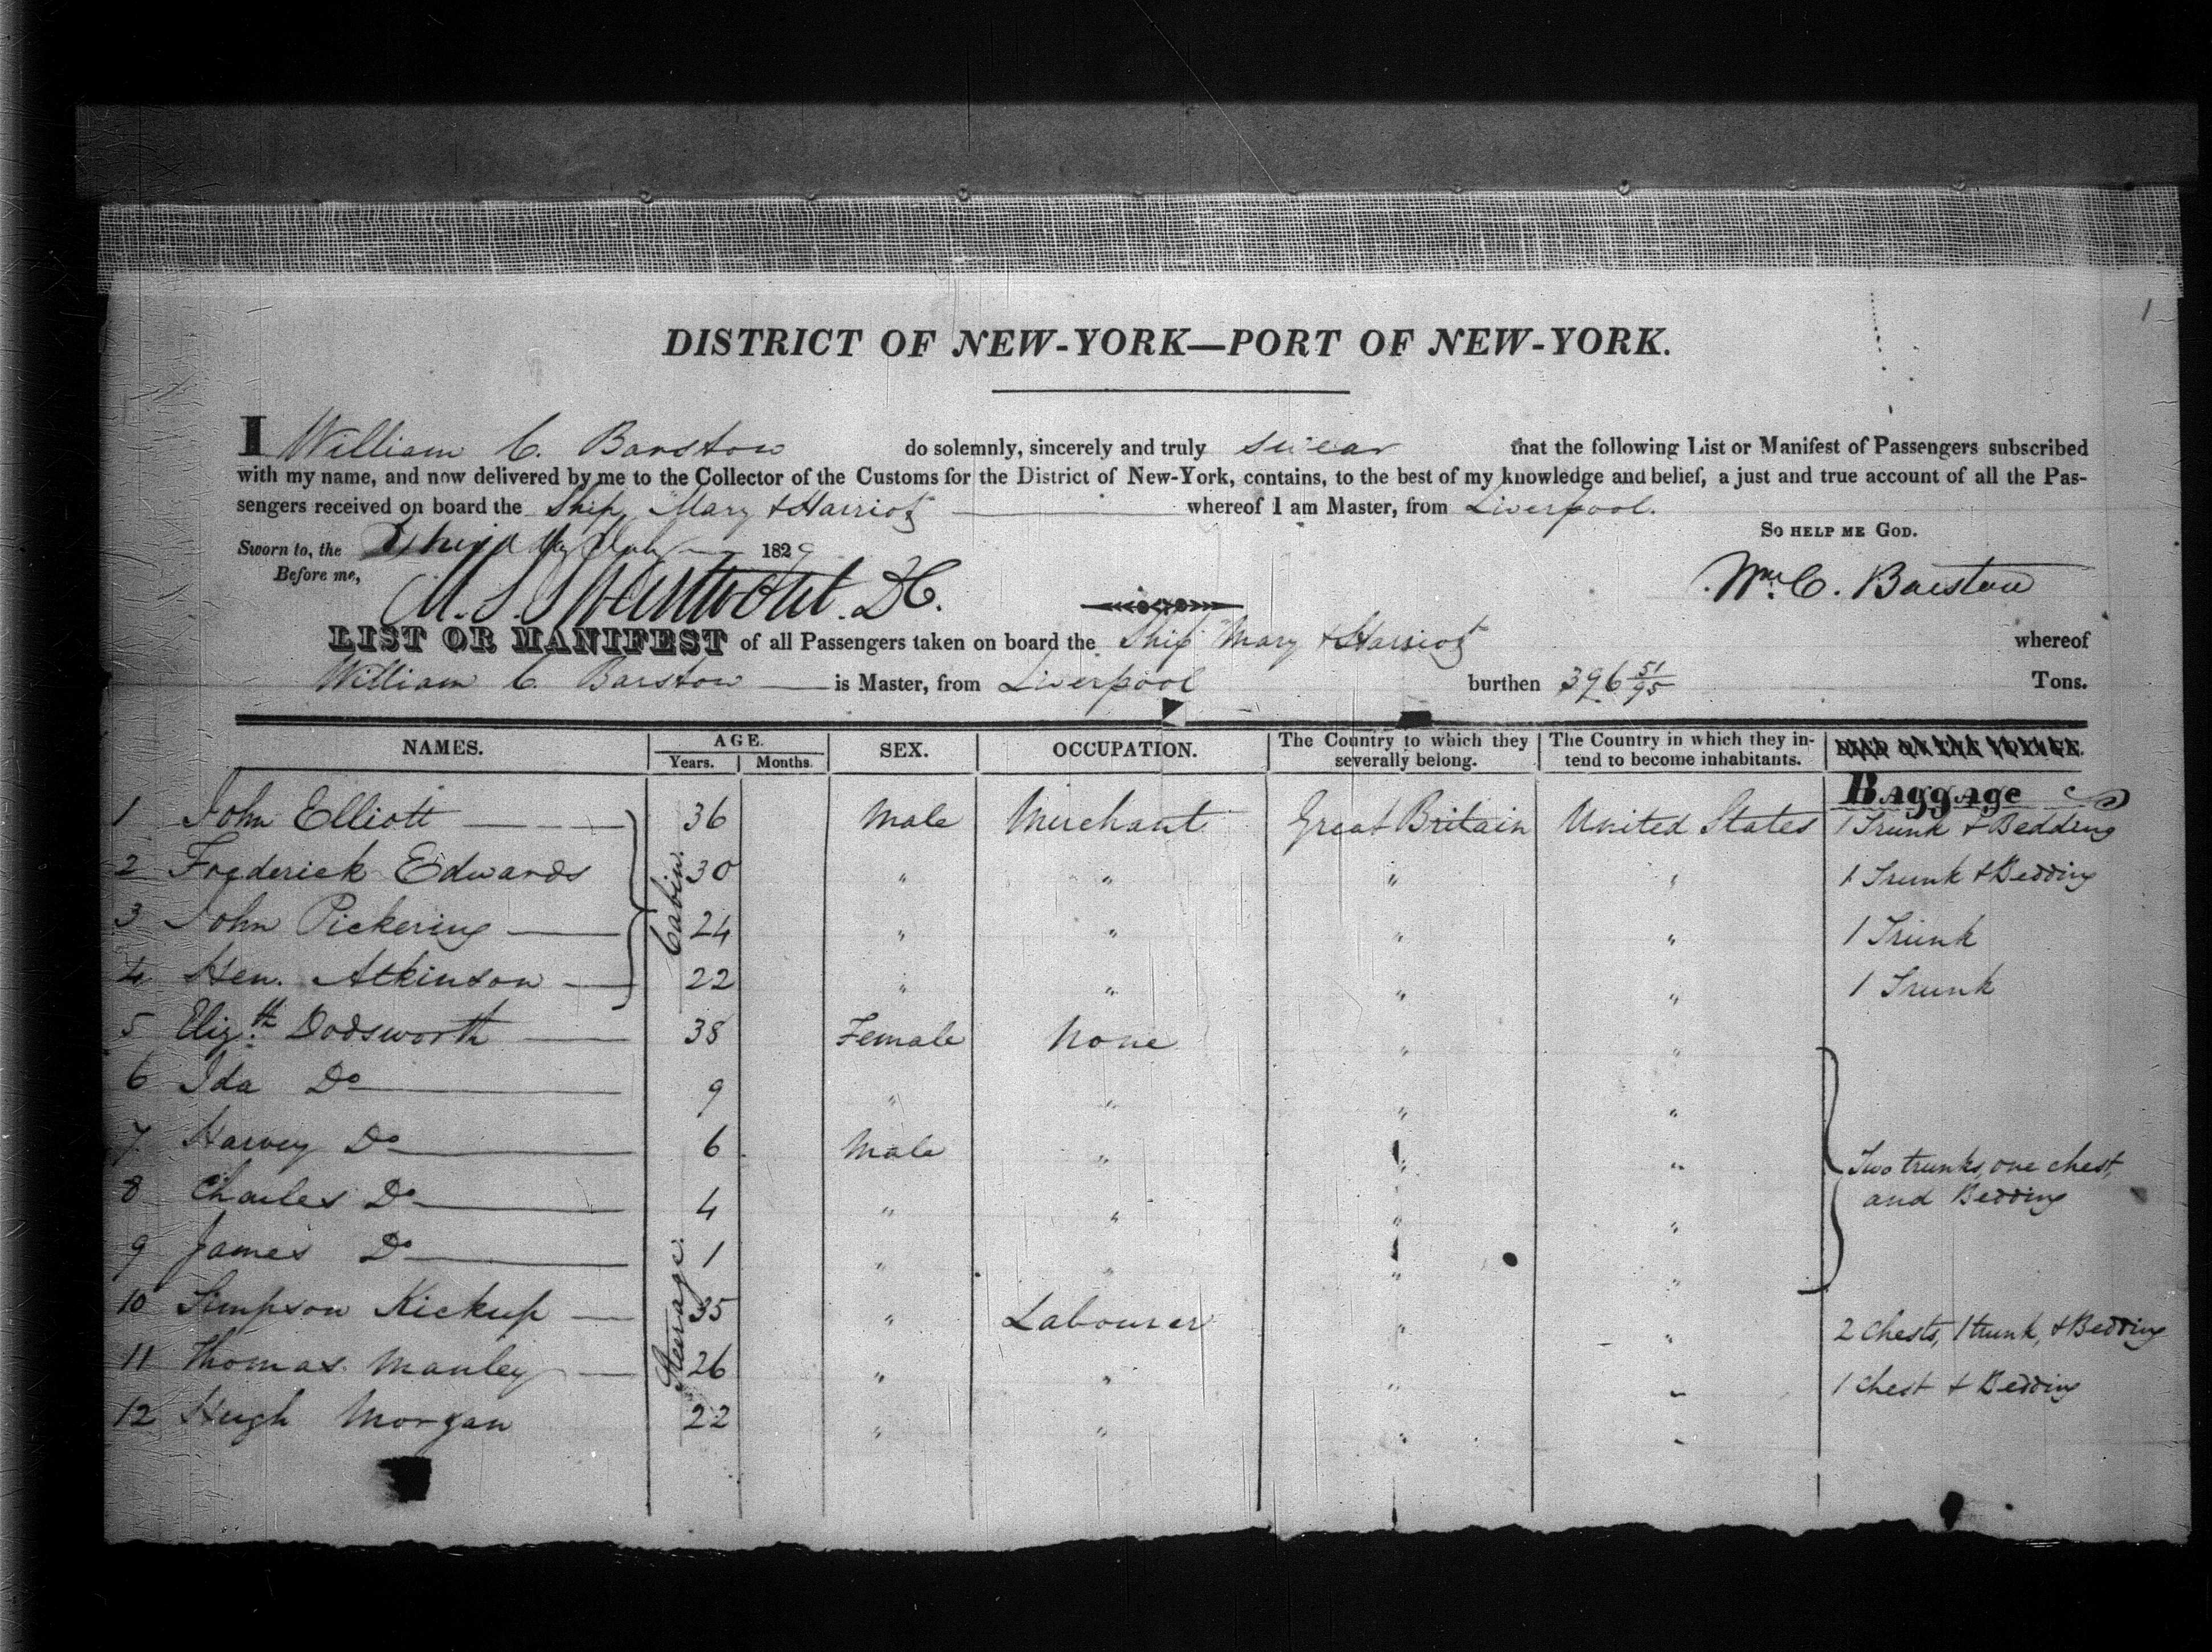 1
DISTRICT OF NEW-YORK—PORT OF NEW-YORK.
I William C. Barstow do solemnly, sincerely and truly swear that the following List or Manifest of Passengers subscribed
with my name, and now delivered by me to the Collector of the Customs for the District of New-York, contains, to the best of my knowledge and belief, a just and true account of all the Pas-
sengers received on board the Ship Mary & Harriot whereof I am Master, from Liverpool.
So HELP ME GOD.
Sworn to, the Third July 1829
Before me,
M. S. Swartwout D C.
Wm. C. Barstow
LIST OR MANIFEST of all Passengers taken on board the Ship Mary & Harriot whereof
William C. Barstow is Master, from Liverpool burthen 396 51/95 Tons.
NAMES. AGE. Years. Months. SEX. OCCUPATION. The Country to which they severally belong. The Country in which they intend to become inhabitants. DIED ON THE VOYAGE.
Baggage
1 John Elliott 36 Male Merchant Great Britain United States 1 Trunk & Bedding
2 Frederick Edwards 30 " " " " 1 Trunk & Bedding
Cabin.
3 John Pickering 24 " " " " 1 Trunk
4 Hen. Atkinson 22 " " " " 1 Trunk
5 Elizth Dodsworth 38 Female None " "
6 Ida Do 9 " " " "
7 Harvey Do 6 Male " " "
Two trunks, one chest,
and Bedding
8 Charles Do 4 " " " "
9 James Do 1 " " " "
Steerage.
10 Simpson Kickup 35 " Labourer " " 2 Chests, 1 trunk, & Bedding
11 Thomas Manley 26 " " " " 1 Chest & Bedding
12 Hugh Morgan 22 " " " "